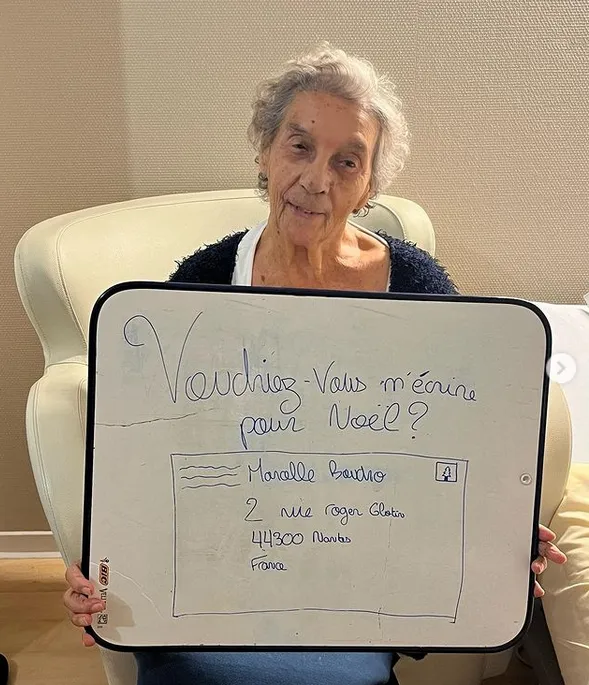 Voudriez-Vous m'écrire
pour Noël ?
Marcelle Bardro
2 rue roger Glotin
44300 Nantes
France
BIC